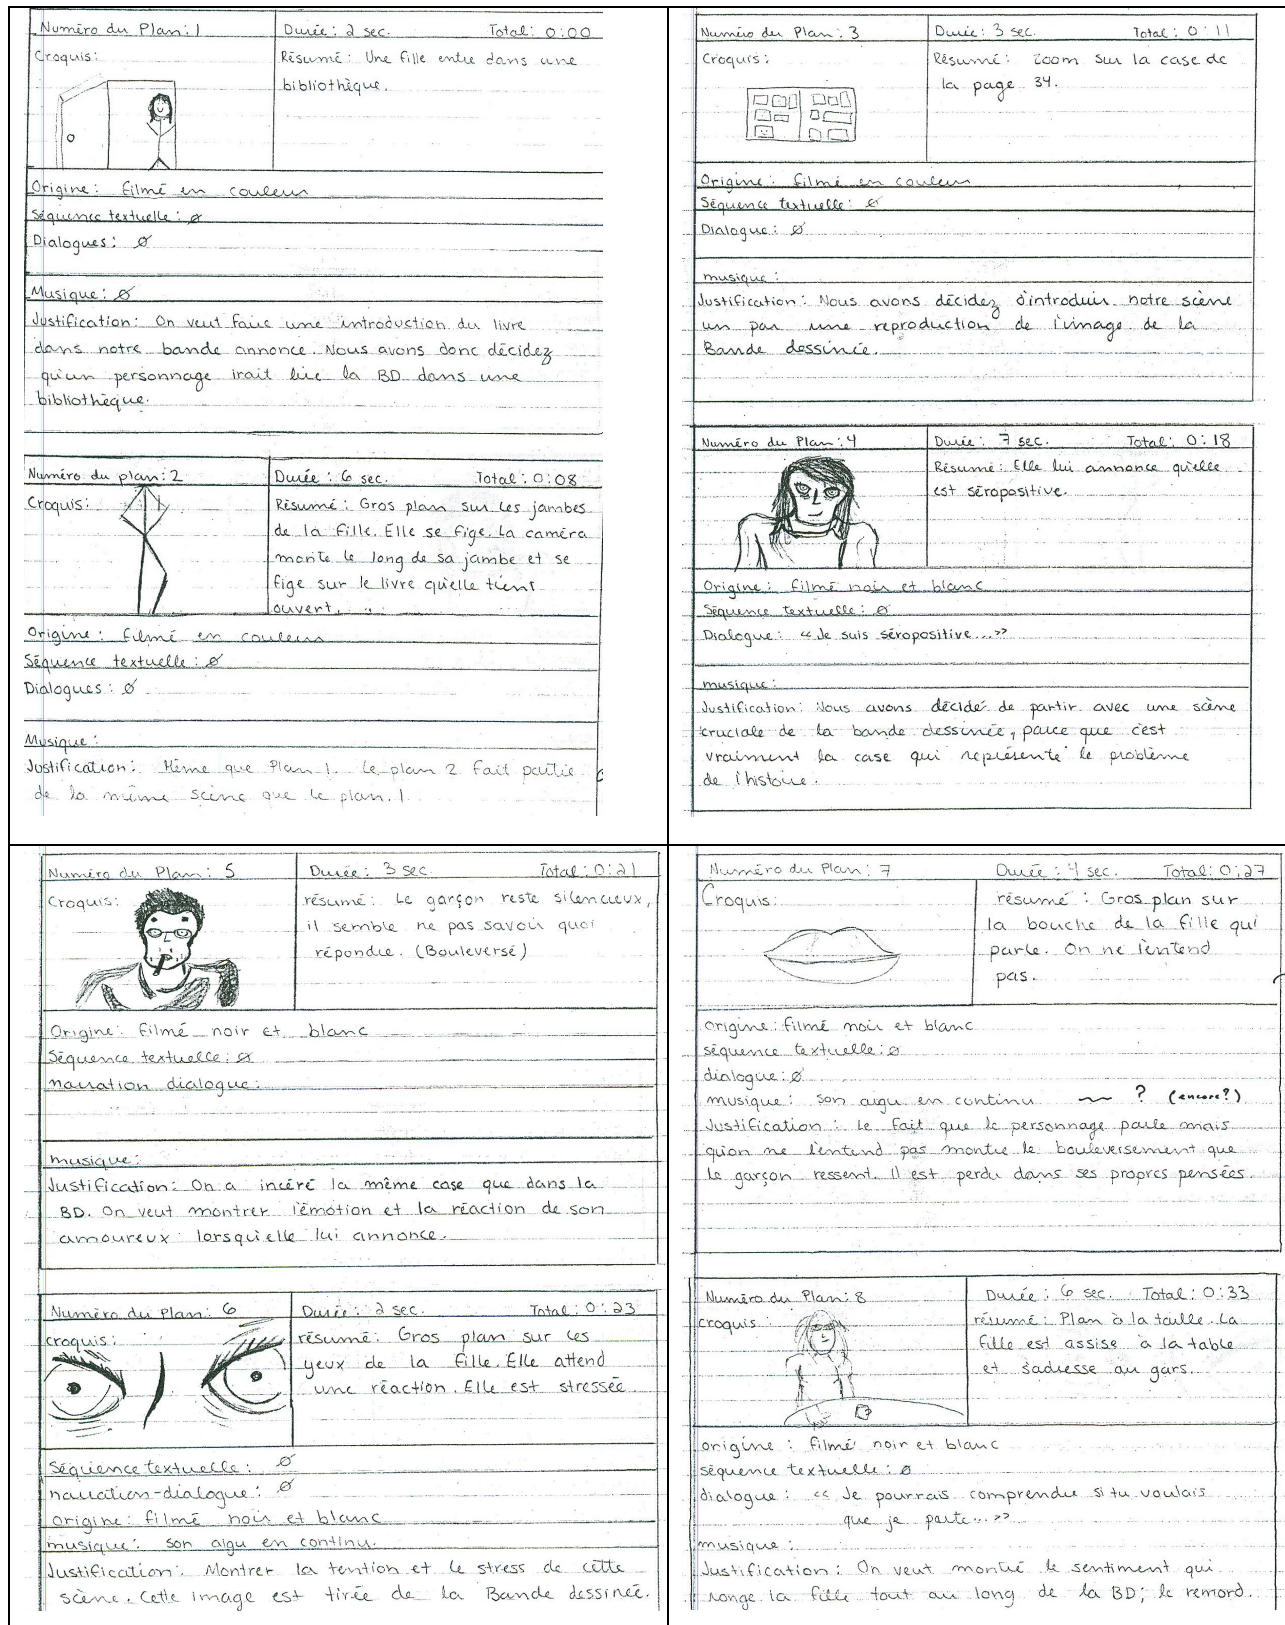 Numéro du Plan: 1 Durée: 2 sec. Total: 0:00
Croquis: Résumé: Une fille entre dans une
bibliothèque.
Origine: filmé en couleur
Séquence textuelle: ø
Dialogues: ø
Musique: ø
Justification: On veut faire une introduction du livre
dans notre bande annonce. Nous avons donc décidez
qu'un personnage irait lire la BD dans une
bibliothèque.
Numéro du plan: 2 Durée: 6 sec. Total: 0:08
Croquis: Résumé: Gros plan sur les jambes
de la fille. Elle se fige. La caméra
monte le long de sa jambe et se
fige sur le livre qu'elle tient
ouvert.
Origine: filmé en couleur
Séquence textuelle: ø
Dialogues: ø
Musique:
Justification: Même que Plan 1. Le plan 2 fait partie
de la même scène que le plan 1
Numéro du Plan: 3 Durée: 3 sec. Total: 0:11
Croquis: Résumé: zoom sur la case de
la page 34.
Origine: filmé en couleur
Séquence textuelle: ø
Dialogue: ø
musique:
Justification: Nous avons décidez d'introduir notre scène
un par une reproduction de l'image de la
Bande dessinée.
Numéro du Plan: 4 Durée: 7 sec. Total: 0:18
Résumé: Elle lui annonce qu'elle
est séropositive.
Origine: filmé noir et blanc
Séquence textuelle: ø
Dialogue: «Je suis séropositive...»
musique:
Justification: Nous avons décidé de partir avec une scène
cruciale de la bande dessinée, parce que c'est
vraiment la case qui représente le problème
de l'histoire.
Numéro du Plan: 5 Durée: 3 sec. Total: 0:21
Croquis: résumé: Le garçon reste silencieux,
il semble ne pas savoir quoi
répondre. (Bouleversé)
Origine: filmé noir et blanc
Séquence textuelle: ø
narration dialogue:
musique:
Justification: On a incéré la même case que dans la
BD. On veut montrer l'émotion et la réaction de son
amoureux lorsqu'elle lui annonce.
Numéro du Plan: 6 Durée: 2 sec. Total: 0:23
croquis: résumé: Gros plan sur les
yeux de la fille. Elle attend
une réaction. Elle est stressée
Séquence textuelle: ø
narration-dialogue: ø
origine: filmé noir et blanc
musique: son aigu en continu.
Justification: Montrer la tention et le stress de cette
scène. Cette image est tirée de la Bande dessinée.
Numéro du Plan: 7 Durée: 4 sec. Total: 0:27
Croquis: résumé: Gros plan sur
la bouche de la fille qui
parle. On ne l'entend
pas.
origine: filmé noir et blanc
séquence textuelle: ø
dialogue: ø
musique: son aigu en continu ? (encore?)
Justification: Le fait que le personnage parle mais
qu'on ne l'entend pas montre le bouleversement que
le garçon ressent. Il est perdu dans ses propres pensées.
Numéro du Plan: 8 Durée: 6 sec. Total: 0:33
croquis: résumé: Plan à la taille. La
fille est assise à la table
et s'adresse au gars.
origine: filmé noir et blanc
séquence textuelle: ø
dialogue: «Je pourrais comprendre si tu voulais
que je parte...»
musique:
Justification: On veut montré le sentiment qui
ronge la fille tout au long de la BD; le remord.